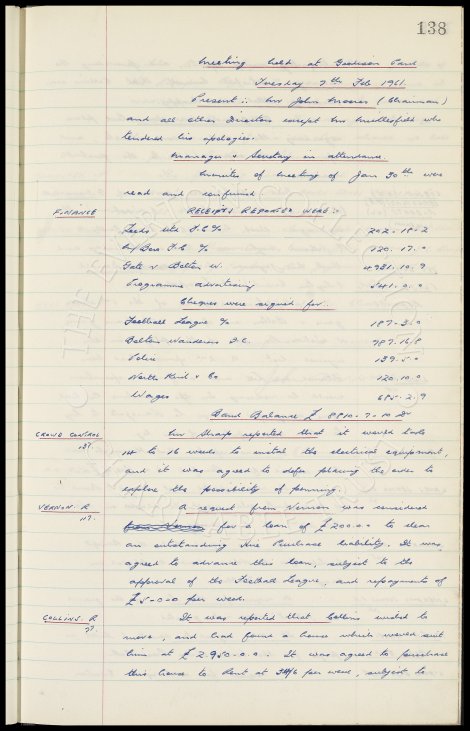 138
Meeting held at Goodison Park
Tuesday 7th Feb 1961.
Present :- Mr John Moores (Chairman)
and all other Directors except Mr Micklesfield who
tendered his apologies.
Manager & Secretary in attendance.
Minutes of meeting of Jan 30th were
read and confirmed
FINANCE RECEIPTS REPORTED WERE :-
Leeds Utd F.C % 202-18-2
F.C % 120.17.0
Gate v Bolton W. 4921.10.9
Programme advertising 541.0.0
Cheques were signed for.
Football League % 187-3.0
Bolton Wanderers F.C. 787.16/8
Police 139.5.0
North & Co 120.10.0
Wages 685-2.9
Bank Balance £ 8810-7-10 Dr
CROWD CONTROL Mr Sharp reported that it would take
137. 14 to 16 weeks to install the electrical equipment,
and it was agreed to defer placing the order to
explore the possibility of
VERNON. R A request from Vernon was considered
117. from Vernon for a loan of £200.0.0 to clear
an outstanding Hire Purchase liability. It was
agreed to advance this loan, subject to the
approval of the Football League, and repayments of
£5-0-0 per week.
COLLINS. R It was reported that Collins wished to
77 move, and had found a house which would suit
him at £2,950-0.0. It was agreed to purchase
this house to Rent at per week, subject to